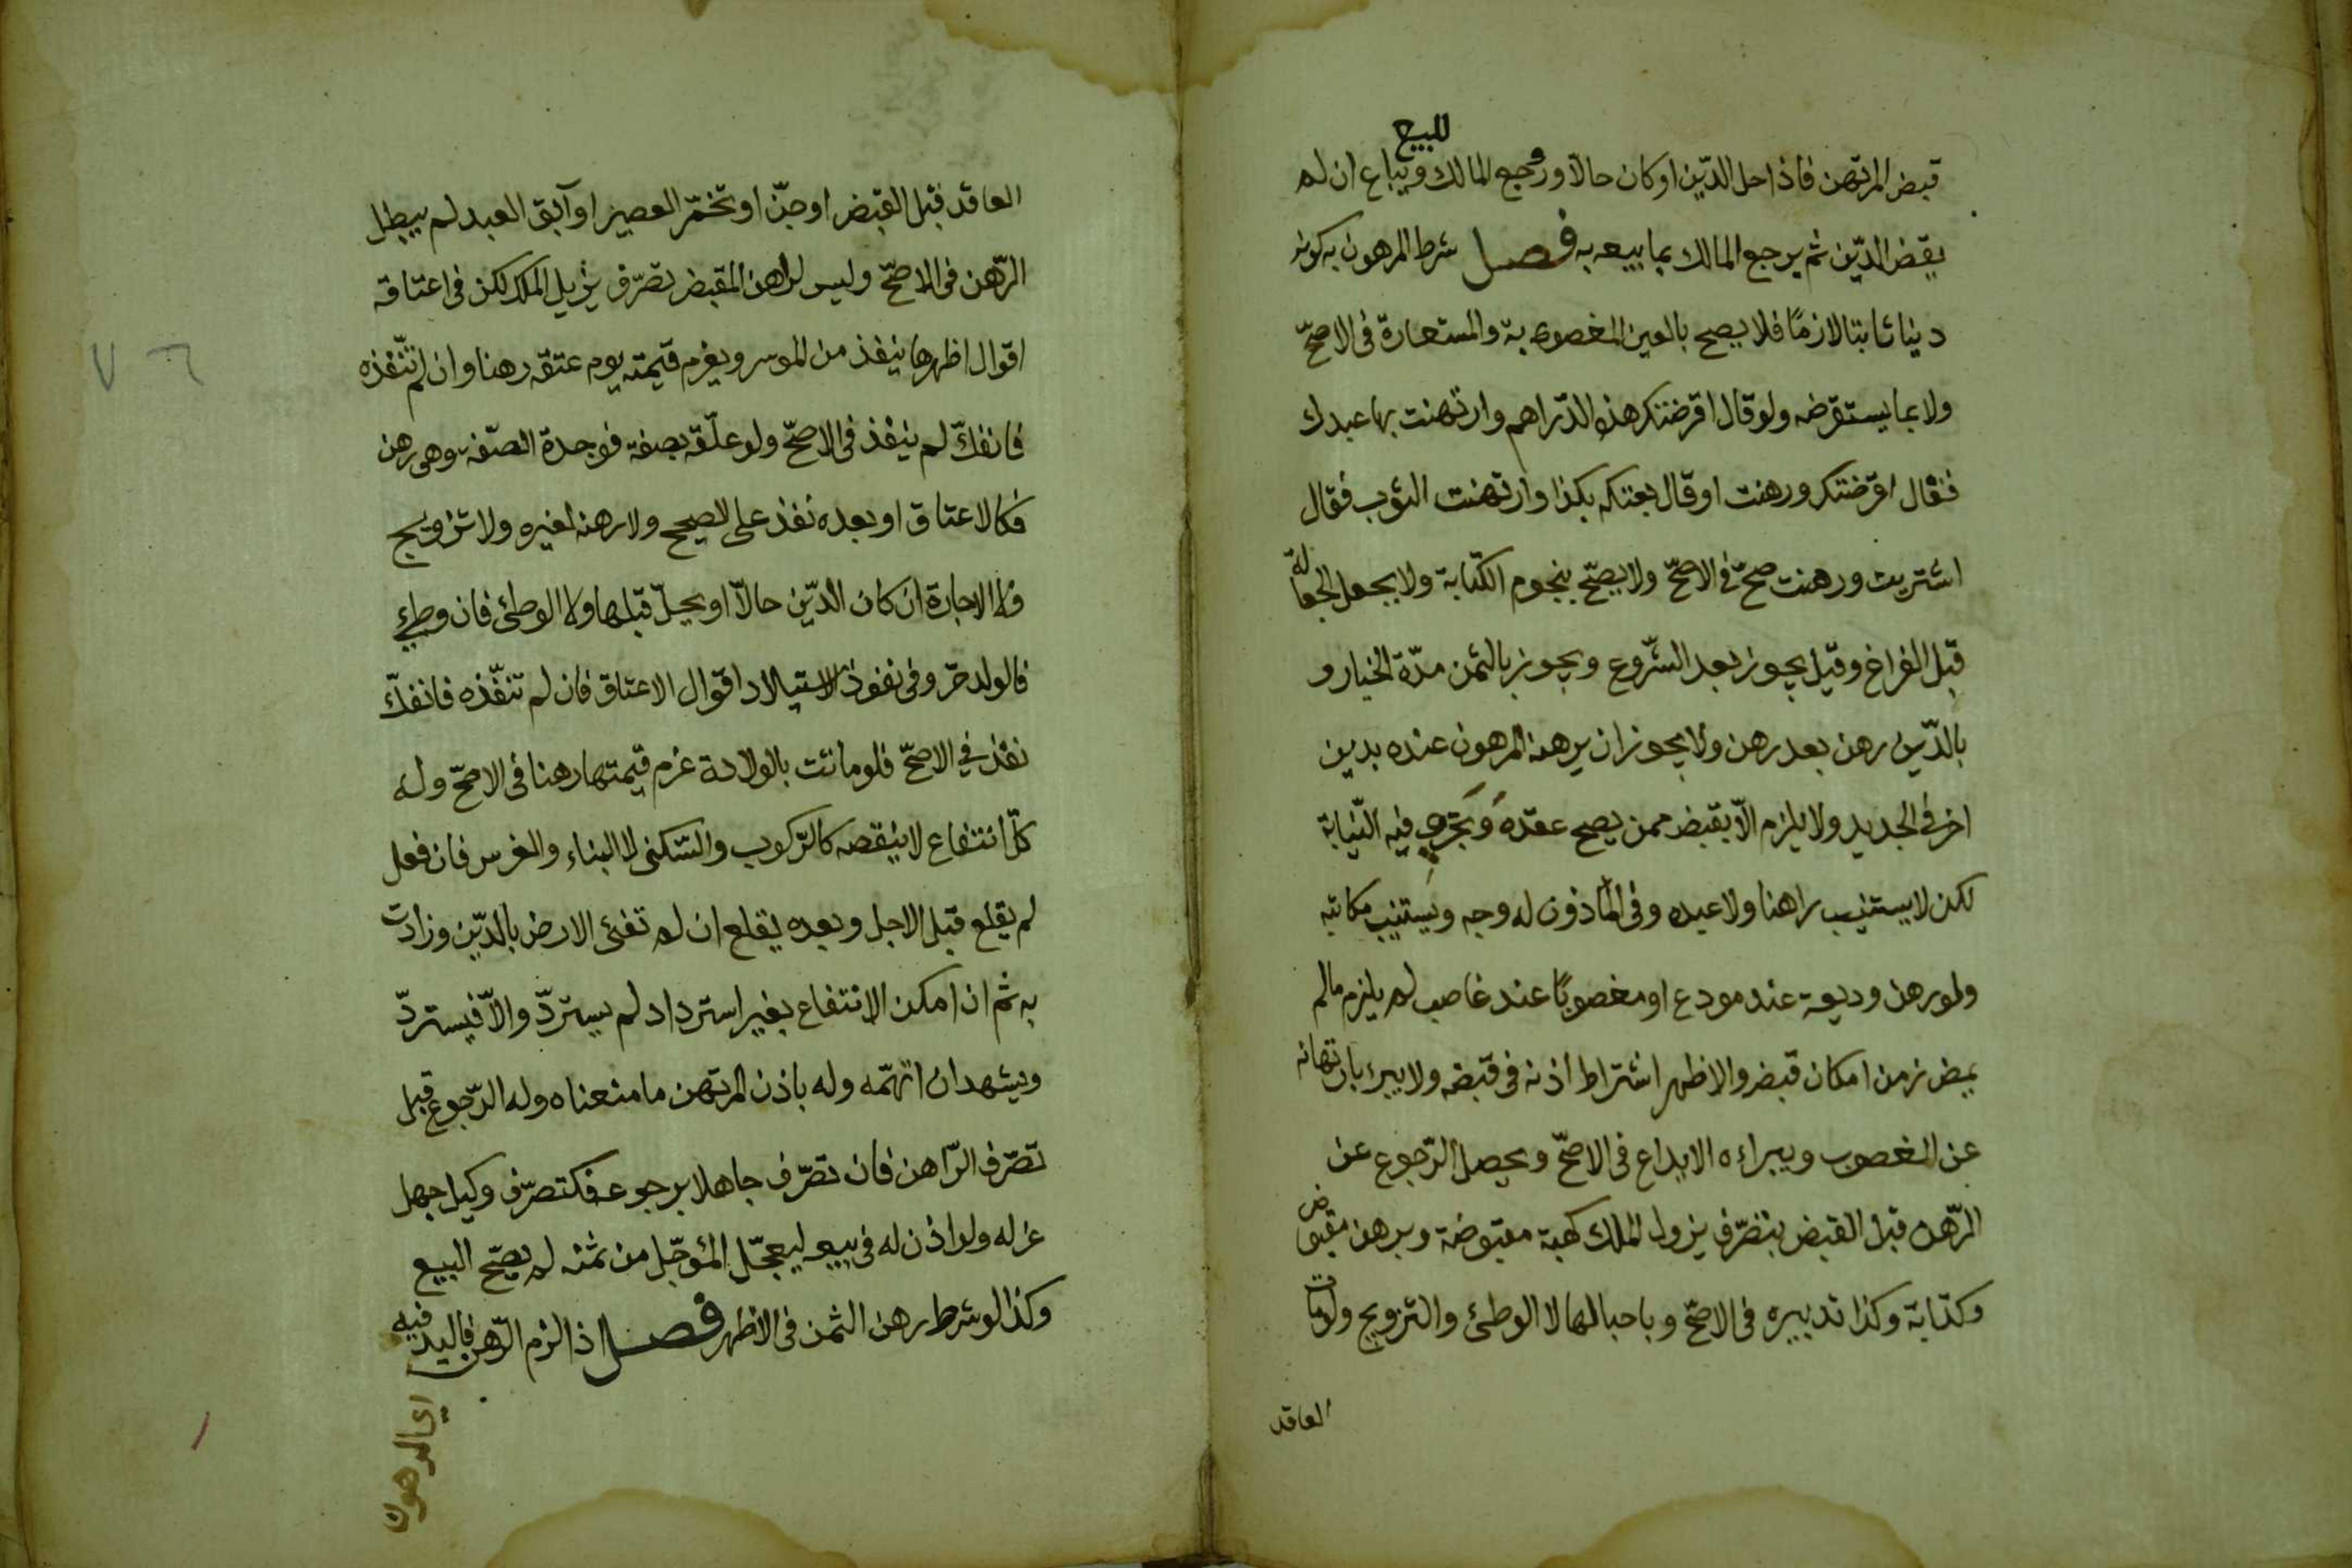 للبيع
قبض المرتهن فاذا حل الدّين او كان حالّا وروجع المالك ويباع ان لم
يقض الدّين ثم يرجع المالك بما بيع به فصل شرط المرهون به كونه
دينا ثابتا لازمًا فلا يصح بالعين المغصوبة والمستعارة فى الاصحّ
ولا بما يستقرضه ولو قال اقرضتك هذه الدّراهم وارتهنت بها عبدك
فقال اقرضتك ورهنت او قال بعتكه بكذا وارتهنت الثوب فقال
اشتريت ورهنت صحّ فى الاصحّ ولا يصحّ بنجوم الكتابة ولا بجعل الجعالة
قبل الفراغ وقيل يجوز بعد الشّروع ويجوز بالثمن مدّة الخيار و
بالدّين رهن بعد رهن ولا يجوز ان يرهنه المرهون عنده بدين
اخر فى الجديد ولا يلزم الّا بقبض ممن يصح عقده وَتَجْرِى فيه النّيابة
لكن لا يستنيب راهنا ولا عبده وفى المأذون له وجه ويستنيب مكاتبه
ولو رهن وديعة عند مودع او مغصوبًا عند غاصب لم يلزم مالم
يمض زمن امكان قبض والاظهر اشتراط اذنه فى قبضه ولا يبرئه بارتهانه
عن الغصوب ويبراءه الايداع فى الاصحّ ويحصل الرّجوع عن
الرّهن قبل القبض بتصّرف يزول الملك كهبة مقبوضة وبرهن مقبوض
وكتابة وكذا تدبيره فى الاصحّ وباحبالها لا الوطئ والتزويج ولومات
العاقد
العاقد قبل القبض او جنّ او تخمّر العصير او آبق العبد لم يبطل
الرّهن فى الاصحّ وليس لراهن المقبض تصرّف يزيل الملك لكن فى اعتاقه
اقوال اظهرها ينفذ من الموسر ويغرم قيمته يوم عتقه رهنا وان لم تنّفذه
فانفكّ لم ينفذ فى الاصحّ ولو علّقه بصفة فوجدة الصّفة وهى رهن
فكالاعتاق او بعده نفذ على الصحيح ولا رهنه لغيره ولا تزويج
ولا الاجارة ان كان الدّين حالّا او يحلّ قبلها ولا الوطئ فان وطئ
فالولد حرّ وفى نفوذ الاستيلاد اقوال الاعتاق فان لم تنفّذه فانفكّ
نفذ في الاصحّ فلو ماتت بالولادة غرم قيمتها رهنا فى الاصحّ وله
كلّ انتفاع لا ينقصه كالرّكوب والسّكنى لا البناء والغرس فان فعل
لم يقلع قبل الاجل وبعده يقلع ان لم تفئ الارض بالدّين وزادت
به ثم ان امكن الانتفاع بغير استرداد لم يستردّ والّا فيستردّ
ويشهد ان اتّهمه وله باذن المرتهن ما منعناه وله الرّجوع قبل
تصرّف الرّاهن فان تصرّف جاهلا برجوعه فكتصرّف وكيل جهل
عزله ولو اذن له فى بيعه ليعجّل المؤجّل من ثمنه لم يصحّ البيع
وكذا لو شرط رهن الثمن فى الاظهر فصل اذا لزم الرّهن فاليد فيه
اي المرهون